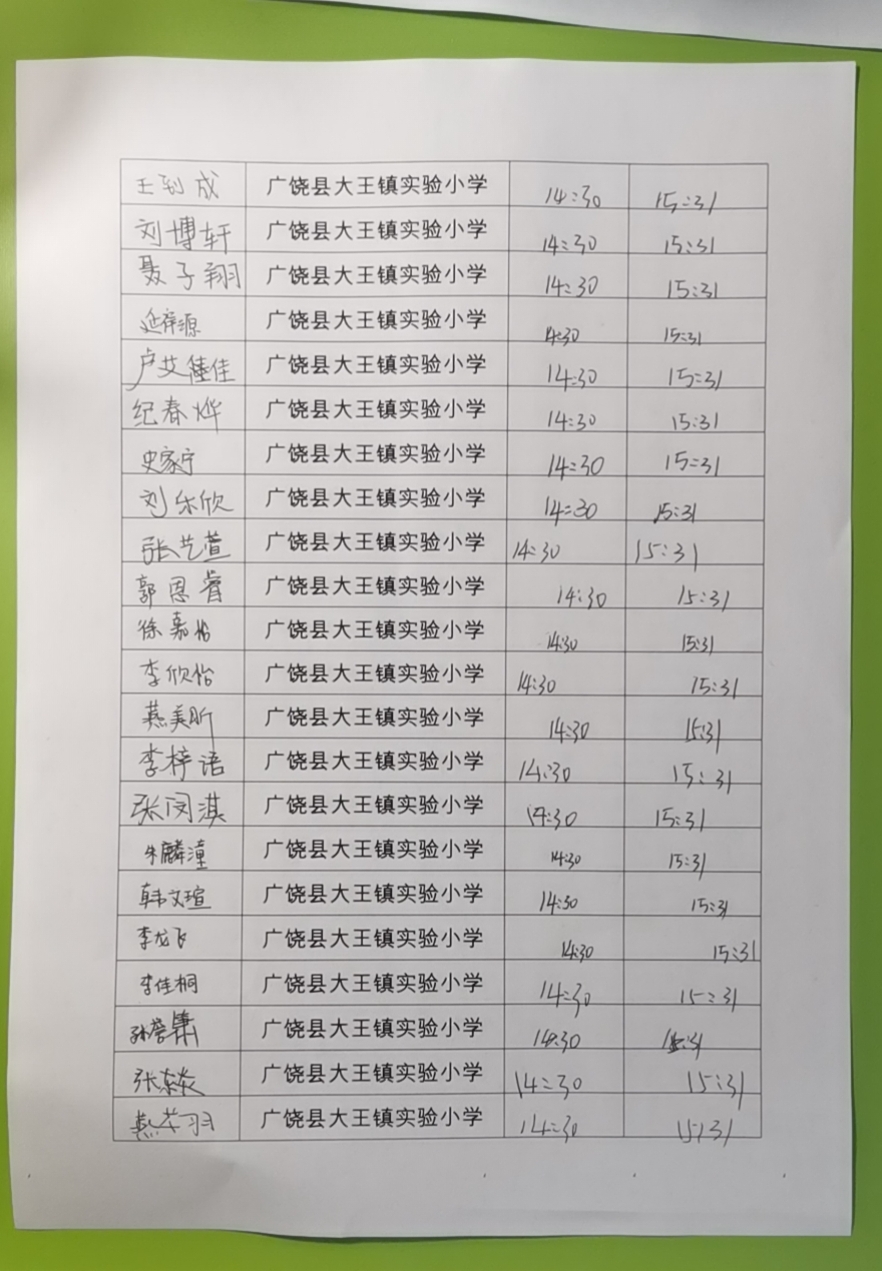 王到成 广饶县大王镇实验小学 14:30 15:31
刘博轩 广饶县大王镇实验小学 14:30 15:31
聂子翔 广饶县大王镇实验小学 14:30 15:31
延梓源 广饶县大王镇实验小学 14:30 15:31
卢艾佳 广饶县大王镇实验小学 14:30 15:31
纪春烨 广饶县大王镇实验小学 14:30 15:31
史家宁 广饶县大王镇实验小学 14:30 15:31
刘乐欣 广饶县大王镇实验小学 14:30 15:31
张艺萱 广饶县大王镇实验小学 14:30 15:31
郭恩睿 广饶县大王镇实验小学 14:30 15:31
徐嘉怡 广饶县大王镇实验小学 14:30 15:31
李欣怡 广饶县大王镇实验小学 14:30 15:31
燕美昕 广饶县大王镇实验小学 14:30 15:31
李梓语 广饶县大王镇实验小学 14:30 15:31
张闵淇 广饶县大王镇实验小学 14:30 15:31
朱麟潼 广饶县大王镇实验小学 14:30 15:31
韩文瑄 广饶县大王镇实验小学 14:30 15:31
李龙飞 广饶县大王镇实验小学 14:30 15:31
李佳桐 广饶县大王镇实验小学 14:30 15:31
广饶县大王镇实验小学 14:30 15:31
张 广饶县大王镇实验小学 14:30 15:31
羽 广饶县大王镇实验小学 14:30 15:31